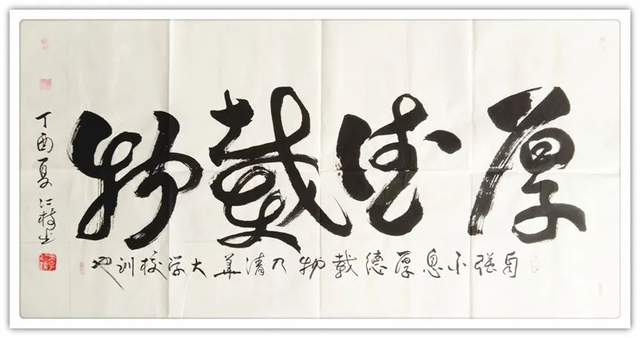 厚德載物
自强不息厚德載物乃清華大学校训也
丁酉夏仁桂书